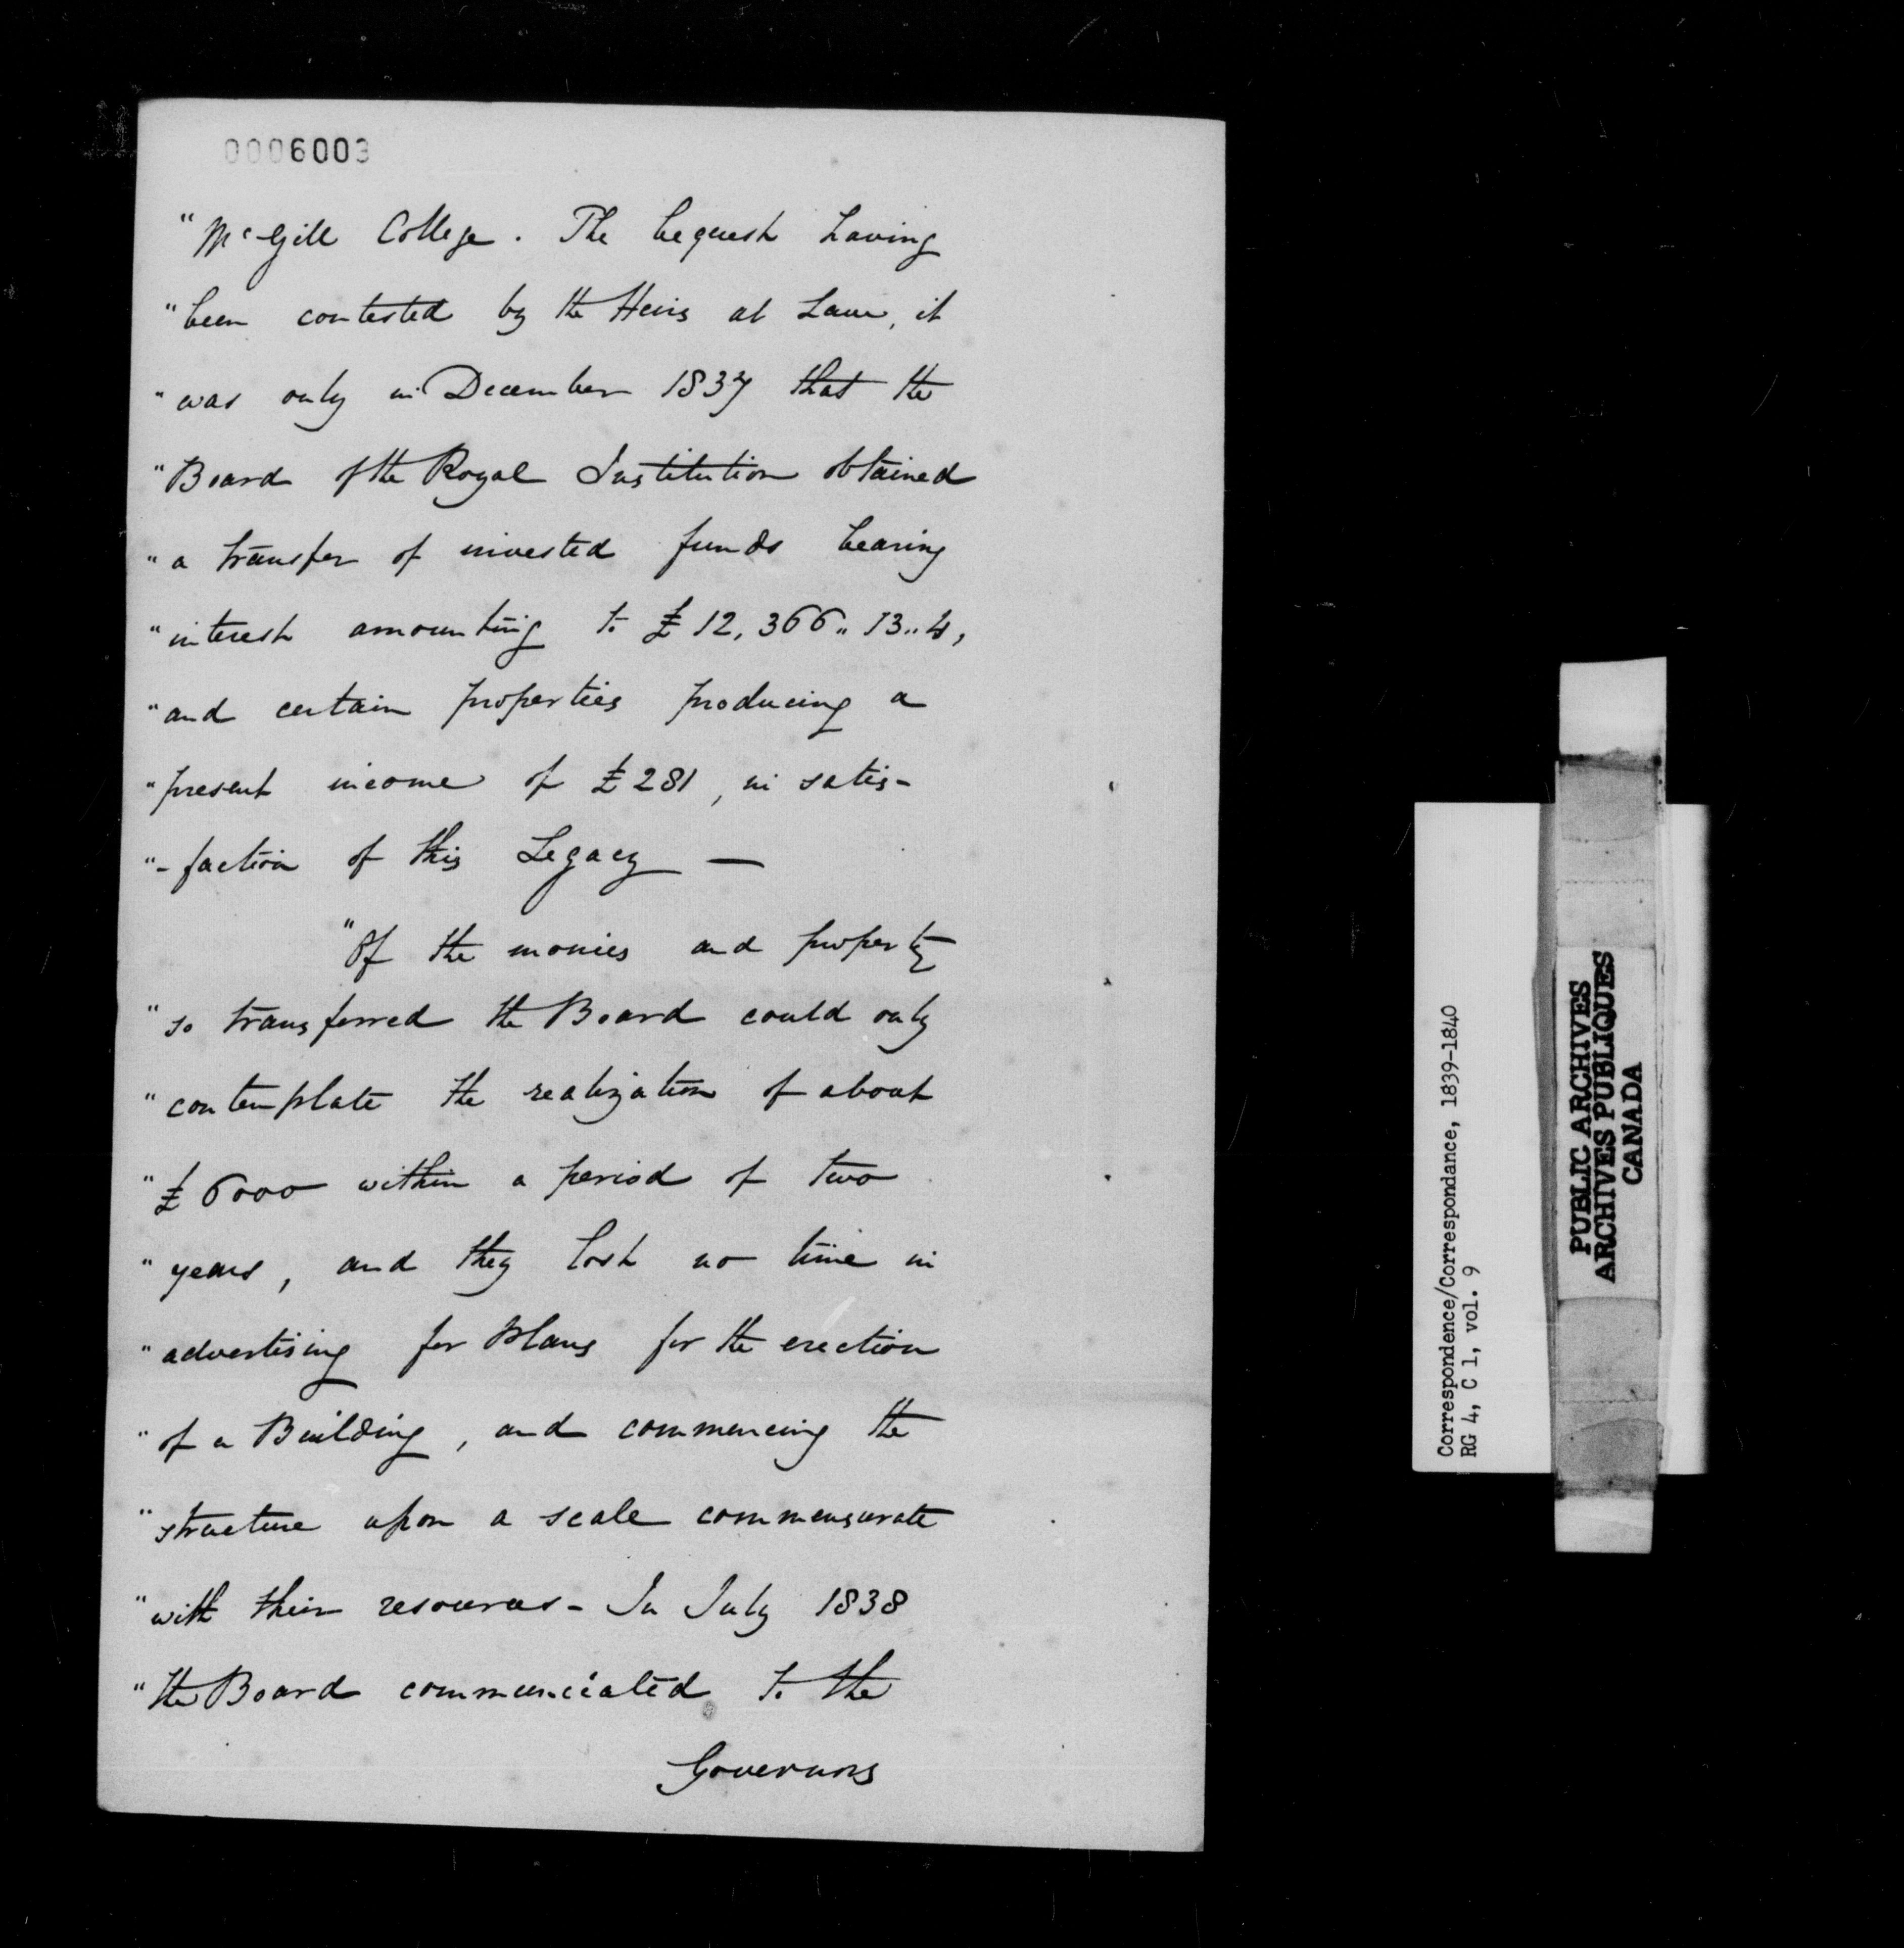 0006003
"McGill College. The bequest having
"been contested by the Heirs at Law, it
"was only in December 1837 that the
"Board of the Royal Institution obtained
"a transfer of invested funds bearing
"interest amounting to £12,366.. 13.. 4,
"and certain properties producing a
"present income of £281, in satis-
"-faction of this Legacy —
"Of the monies and property
"so transferred the Board could only
"contemplate the realization of about
"£6000 within a period of two
"years, and they lost no time in
"advertising for Plans for the erection
"of a Building, and commencing the
"structure upon a scale commensurate
"with their resources - In July 1838
"the Board communicated to the
Governors
Correspondence/Correspondance, 1839-1840
RG 4, C 1, vol. 9
PUBLIC ARCHIVES
ARCHIVES PUBLIQUES
CANADA